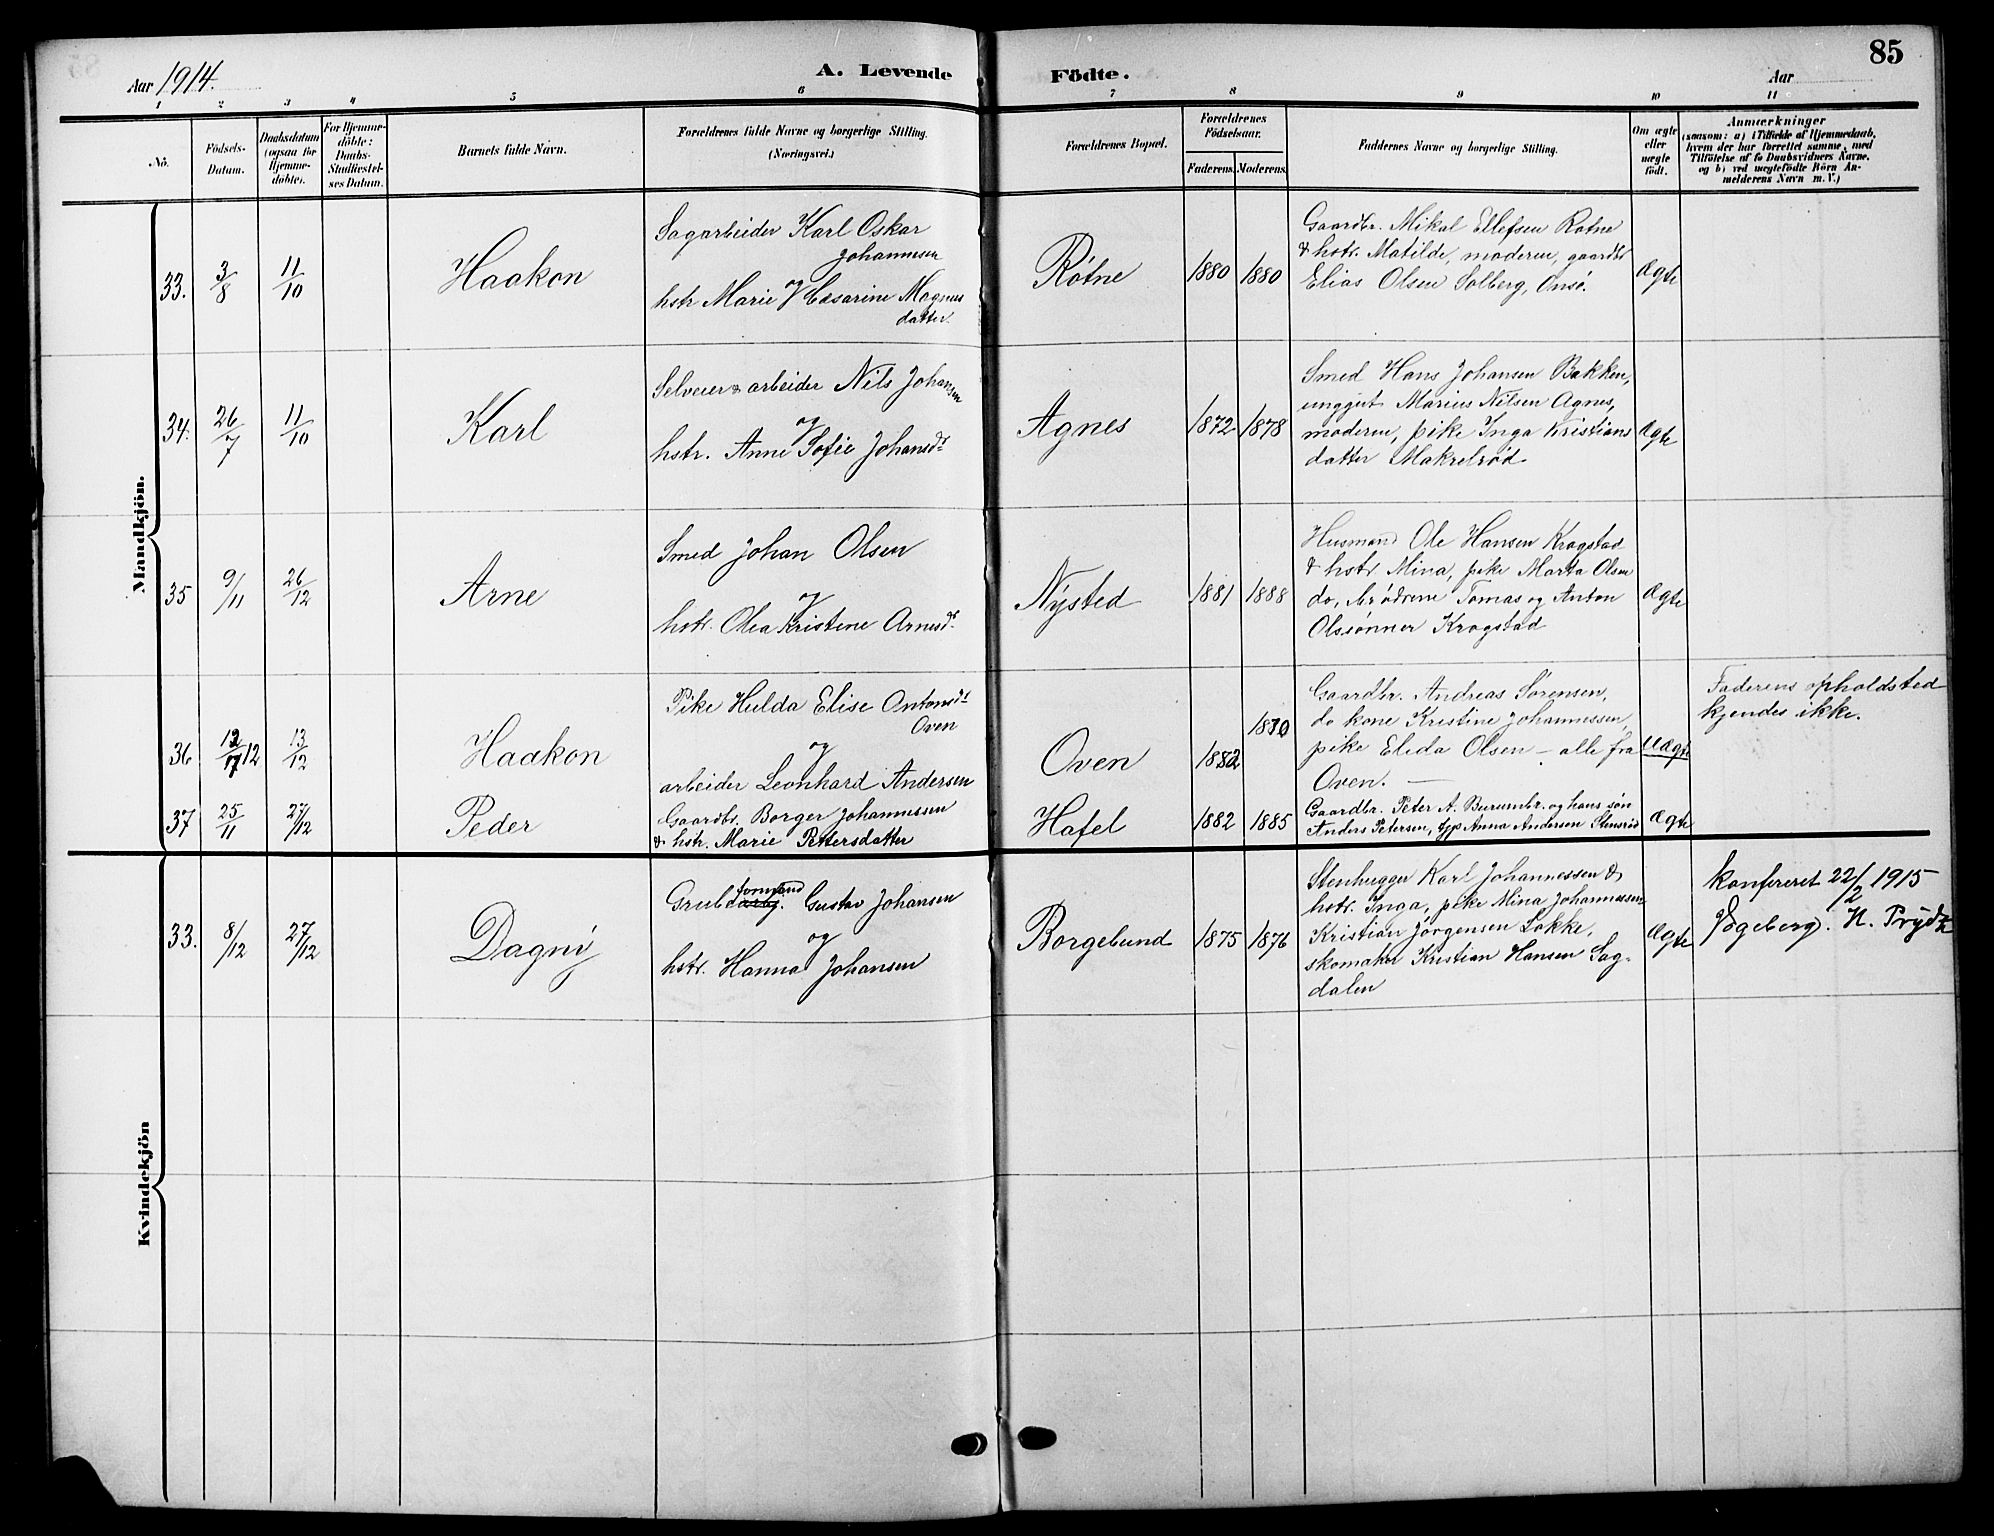 85
Aar 1914.
A. Levende Födte.
Aar
1 2 3 4 5 6 7 8 9 10 11
No.
Födsels-
Datum.
Daabsdatum
(ogsaa for
Hjemme-
döbte).
For Hjemme-
döbte:
Daabs-
Stadfæstel-
ses Datum.
Barnets fulde Navn.
Forældrenes fulde Navne og borgerlige Stilling.
(Næringsvei.)
Forældrenes Bopæl.
Forældrenes
Födselsaar.
Faderens. Moderens.
Faddernes Navne og borgerlige Stilling.
Om ægte
eller
uægte
födt.
Anmærkninger
(saasom: a) i Tilfælde af Hjemmedaab,
hvem der har forrettet samme, med
Tilföielse af to Daabsvidners Navne,
og b) ved uægtefödte Börn An-
melderens Navn m. V.)
Mandkjön.
33. 3/8 11/10 Haakon
Sagarbeider Karl Oskar
Johannesen
og
hstr Marie Cæsarine Magnus
datter.
Røtne 1880 1880
Gaardbr. Mikal Ellefsen Røtne
& hstr. Matilde, moderen, gaardbr
Elias Olsen Solberg, Onsø.
Ægte
34. 26/7 11/10 Karl
Selveier & arbeider Nils Johansen
og
hstr. Anne Sofie Johansdr
Agnes 1872 1878
Smed Hans Johansen Bakken,
unggut Marius Nilsen Agnes,
moderen, pike Inga Kristians
datter Makrelrød
Ægte
35 9/11 26/12 Arne
Smed Johan Olsen
og
hstr. Olea Kristine Arnesdr.
Nysted 1881 1888
Husmand Ole Hansen Krogstad
& hstr Mina, pike Marta Olsen
do, brødrene Tomas og Anton
Olssønner Krogstad
Ægte
36 12 13/12 Haakon
Pike Hulda Elise Antonsdr
Oven
og
arbeider Leonhard Andersen
Oven 1882 1870
Gaardbr. Andreas Sørensen,
do kone Kristine Johannessen,
pike Elida Olsen — alle fra
Oven. —
Uægte
Faderens opholdsted
kjendes ikke.
37 25/11 27/12 Peder
Gaardbr. Borger Johannessen
& hstr. Marie Pettersdatter
Hafel 1882 1885
Gaardbr. Peter A. Burumbr. og hans søn
Anders Petersen, Anna Andersen Stensrød
Ægte
Kvindekjön
33. 8/12 27/12 Dagny
formand
Grubearbj. Gustav Johansen
og
hstr. Hanna Johansen
Borgebund 1875 1876
Stenhugger Karl Johannessen &
hstr. Inga, pike Mina Johannessen
Kristian Jørgensen Løkke,
skomaker Kristian Hansen Sag-
dalen
Ægte
konfereret 22/2 1915
Egeberg. H. Prydz